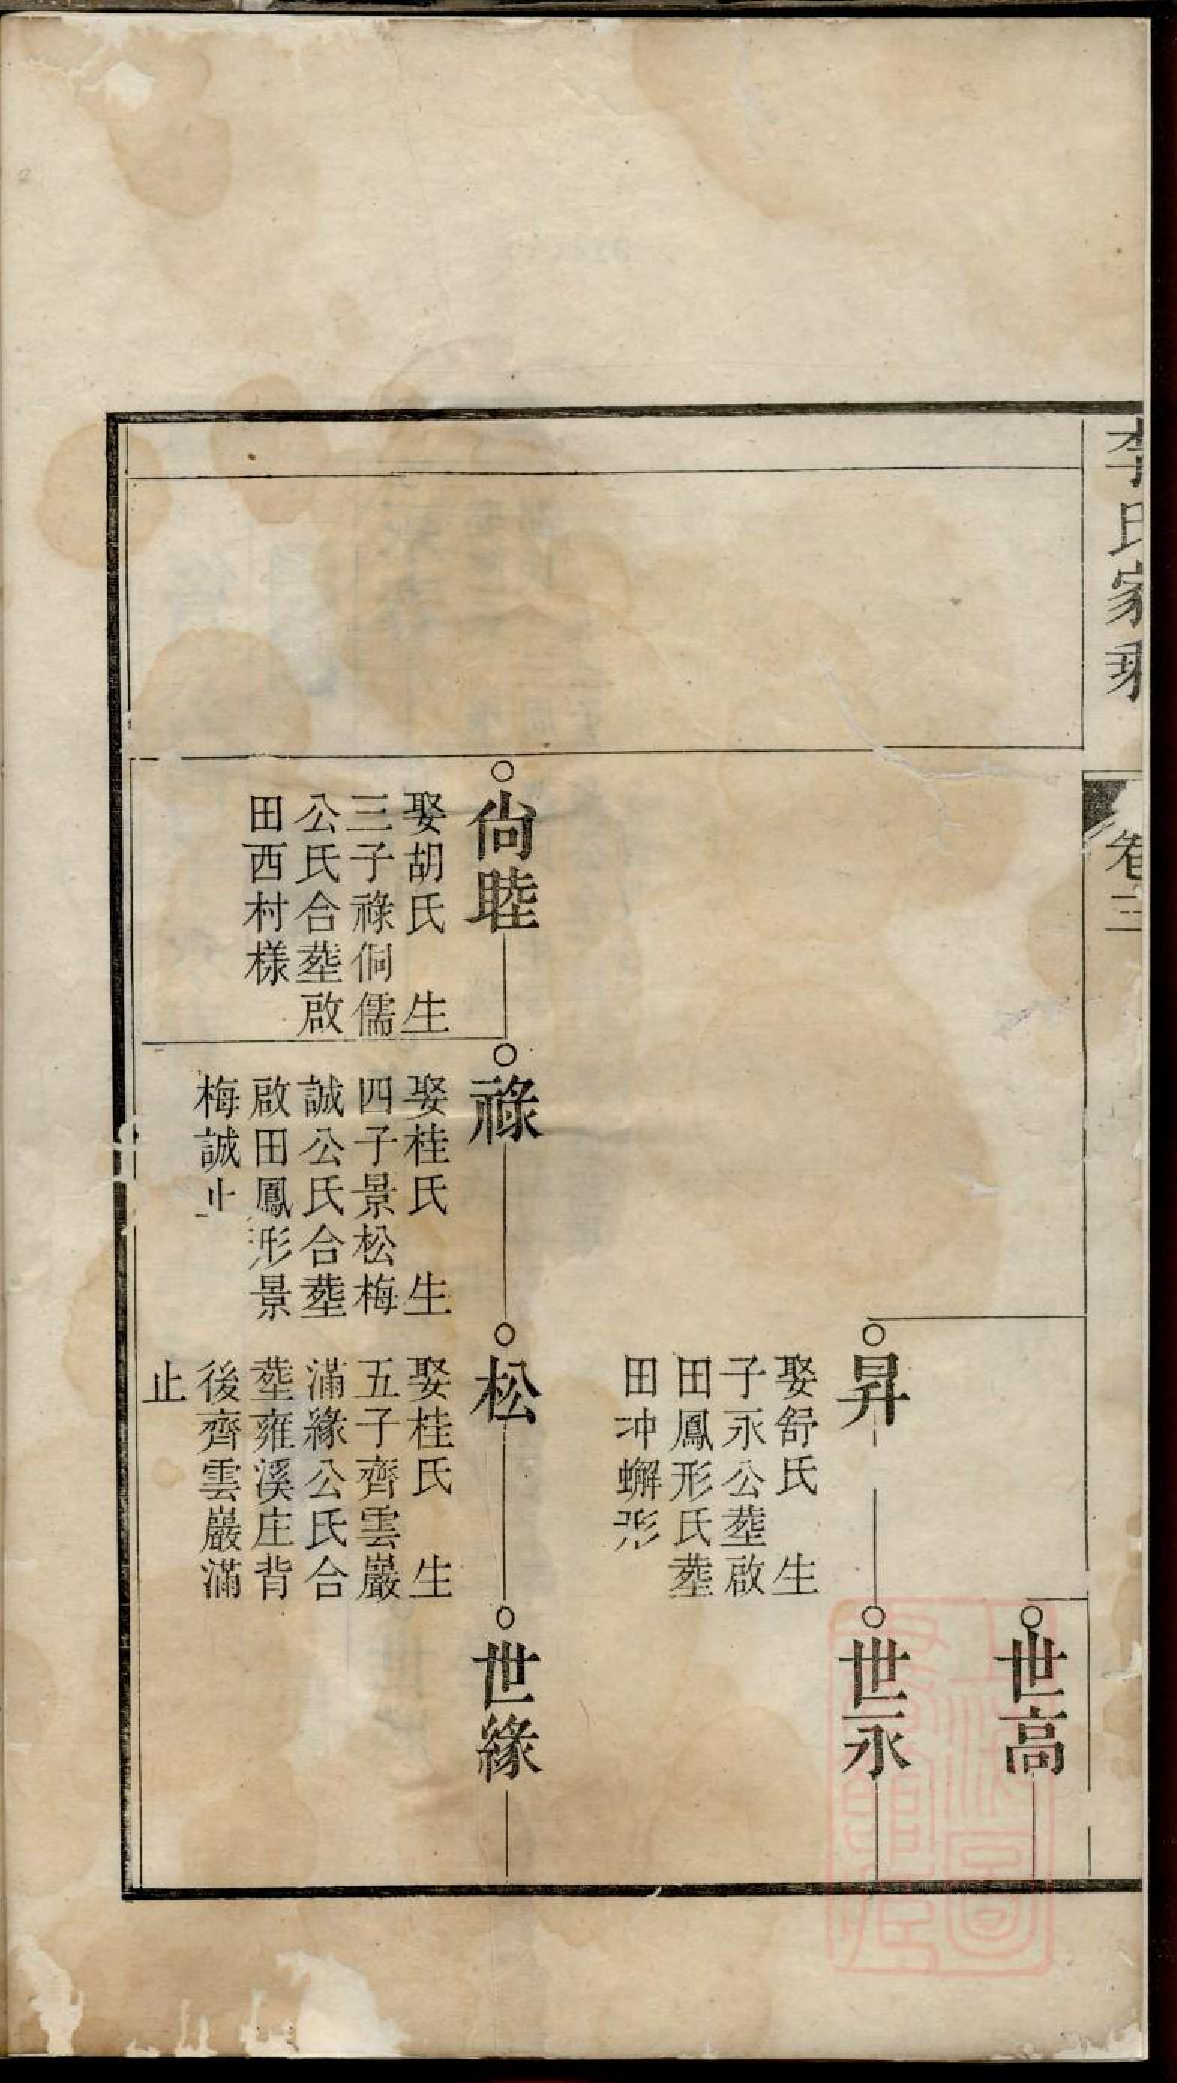 李氏家乘
卷二
世高
昇
娶舒氏　生
子永公塟啟
田鳳形氏塟
田冲蠏形
世永
尙睦
娶胡氏　生
三子祿侗儒
公氏合塟啟
田西村様
祿
娶桂氏　生
四子景松梅
誠公氏合塟
啟田鳳形景
梅誠止
松
娶桂氏　生
五子齊雲巖
滿緣公氏合
塟雍溪庄背
後齊雲巖滿
止
世緣